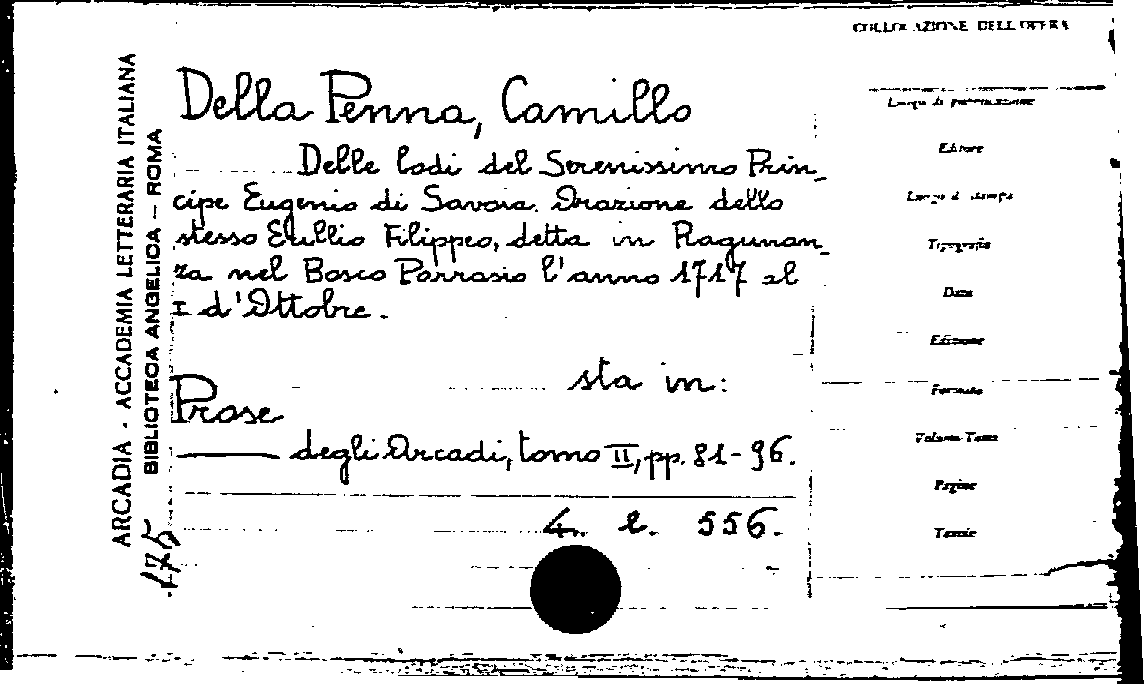 COLLOCAZIONE DELL'OPERA
ARCADIA - ACCADEMIA LETTERARIA ITALIANA
BIBLIOTECA ANGELICA - ROMA
175
Della Penna, Camillo
Delle lodi del Serenissimo Prin_
cipe Eugenio di Savoia. Orazione dello
stesso Eullio Filippeo, detta in Ragunan_
za nel Bosco Parrasio l'anno 1717 al
I d'Ottobre.
sta in:
Prose
degli Arcadi, tomo II, pp. 81-96.
4. l. 556.
Luogo di pubblicazione
Editore
Luogo di stampa
Tipografia
Data
Edizione
Formato
Volume-Tomo
Pagine
Tavole